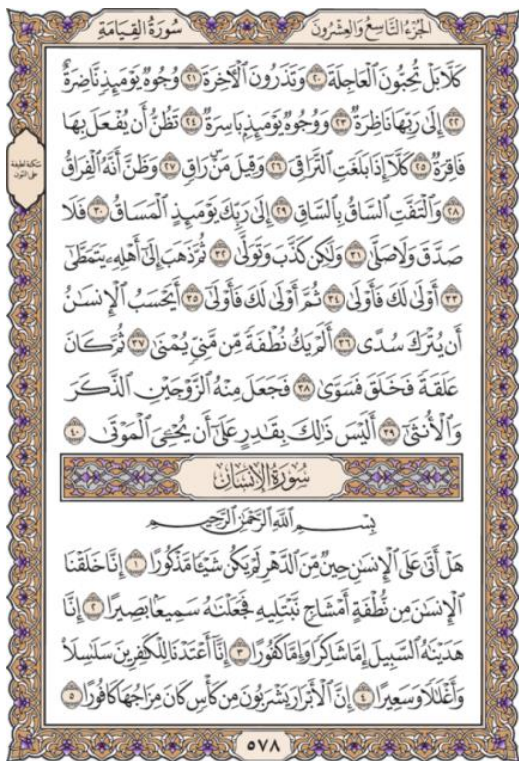 الجُزْءُ التَّاسِعُ وَالعِشْرُونَ
سُورَةُ القِيَامَةِ
كَلَّا بَلْ تُحِبُّونَ الْعَاجِلَةَ ٢٠ وَتَذَرُونَ الْآخِرَةَ ٢١ وُجُوهٌ يَوْمَئِذٍ نَّاضِرَةٌ
٢٢ إِلَىٰ رَبِّهَا نَاظِرَةٌ ٢٣ وَوُجُوهٌ يَوْمَئِذٍ بَاسِرَةٌ ٢٤ تَظُنُّ أَن يُفْعَلَ بِهَا
فَاقِرَةٌ ٢٥ كَلَّا إِذَا بَلَغَتِ التَّرَاقِيَ ٢٦ وَقِيلَ مَنْ ۜ رَاقٍ ٢٧ وَظَنَّ أَنَّهُ الْفِرَاقُ
٢٨ وَالْتَفَّتِ السَّاقُ بِالسَّاقِ ٢٩ إِلَىٰ رَبِّكَ يَوْمَئِذٍ الْمَسَاقُ ٣٠ فَلَا
صَدَّقَ وَلَا صَلَّىٰ ٣١ وَلَٰكِن كَذَّبَ وَتَوَلَّىٰ ٣٢ ثُمَّ ذَهَبَ إِلَىٰ أَهْلِهِ يَتَمَطَّىٰ
٣٣ أَوْلَىٰ لَكَ فَأَوْلَىٰ ٣٤ ثُمَّ أَوْلَىٰ لَكَ فَأَوْلَىٰ ٣٥ أَيَحْسَبُ الْإِنسَٰنُ
أَن يُتْرَكَ سُدًى ٣٦ أَلَمْ يَكُ نُطْفَةً مِّن مَّنِيٍّ يُمْنَىٰ ٣٧ ثُمَّ كَانَ
عَلَقَةً فَخَلَقَ فَسَوَّىٰ ٣٨ فَجَعَلَ مِنْهُ الزَّوْجَيْنِ الذَّكَرَ
وَالْأُنثَىٰ ٣٩ أَلَيْسَ ذَٰلِكَ بِقَٰدِرٍ عَلَىٰ أَن يُحْـِۧيَ الْمَوْتَىٰ ٤٠
سُورَةُ الإِنسَانِ
بِسْمِ اللَّهِ الرَّحْمَٰنِ الرَّحِيمِ
هَلْ أَتَىٰ عَلَى الْإِنسَٰنِ حِينٌ مِّنَ الدَّهْرِ لَمْ يَكُن شَيْـًٔا مَّذْكُورًا ١ إِنَّا خَلَقْنَا
الْإِنسَٰنَ مِن نُّطْفَةٍ أَمْشَاجٍ نَّبْتَلِيهِ فَجَعَلْنَٰهُ سَمِيعًا بَصِيرًا ٢ إِنَّا
هَدَيْنَٰهُ السَّبِيلَ إِمَّا شَاكِرًا وَإِمَّا كَفُورًا ٣ إِنَّا أَعْتَدْنَا لِلْكَٰفِرِينَ سَلَٰسِلَا۟
وَأَغْلَٰلًا وَسَعِيرًا ٤ إِنَّ الْأَبْرَارَ يَشْرَبُونَ مِن كَأْسٍ كَانَ مِزَاجُهَا كَافُورًا ٥
سكتة لطيفة
على النون
٥٧٨